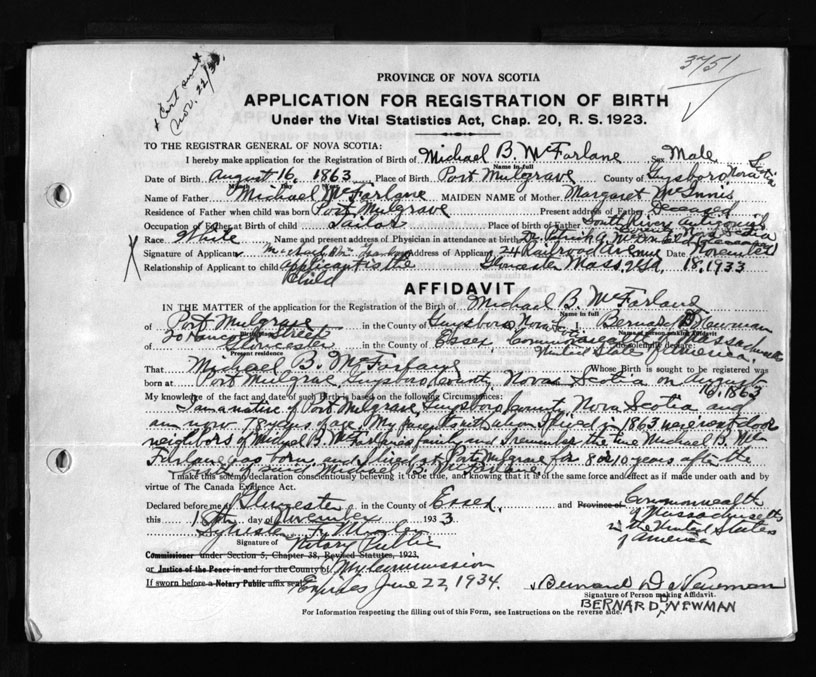 Cert sent
Nov. 22/33.
3751
PROVINCE OF NOVA SCOTIA
APPLICATION FOR REGISTRATION OF BIRTH
Under the Vital Statistics Act, Chap. 20, R. S. 1923.
TO THE REGISTRAR GENERAL OF NOVA SCOTIA:
I hereby make application for the Registration of Birth of Michael B. McFarlane Sex Male
Name in full
Date of Birth August 16, 1863 Place of Birth Port Mulgrave County of Guysboro Nova Scotia
Month Day
Name of Father Michael McFarlane MAIDEN NAME of Mother Margaret McInnis
Residence of Father when child was born Port Mulgrave Present address of Father Deceased
Occupation of Father at Birth of child Sailor Place of birth of Father South River
Race White Name and present address of Physician in attendance at birth Dr. Patrick
Signature of Applicant Address of Applicant 24 Railroad Avenue
Relationship of Applicant to child Applicant is the Gloucester Mass, USA 18, 1933
Child
AFFIDAVIT
IN THE MATTER of the application for the Registration of the Birth of Michael B. McFarlane
Name in full
of Port Mulgrave in the County of Guysboro, Nova Scotia I, Bernard D. Newman
Birthplace Name of person making Affidavit
of 20 Hancock Street Gloucester in the County of Essex, Commonwealth of Massachusetts do solemnly declare:
Present residence United States of America.
That Michael B. McFarlane Whose Birth is sought to be registered was
born at Port Mulgrave Guysboro County, Nova Scotia on August
16, 1863
My knowledge of the fact and date of such Birth is based on the following Circumstances:
I am a native of Port Mulgrave, Guysboro County, Nova Scotia and
am now 78 years of age. My parents with whom I lived in 1863 were next door
neighbors of Michael B. McFarlane's family and I remember the time Michael B. Mc
Farlane was born, and I lived at Port Mulgrave for 8 or 10 years after the
birth of said Michael B. McFarlane.
I make this solemn declaration conscientiously believing it to be true, and knowing that it is of the same force and effect as if made under oath and by
virtue of The Canada Evidence Act.
Declared before me at Gloucester in the County of Essex and Province of Commonwealth
of Massachusetts
in the United States
of America
this 18th day of November 1933
Sylvester F.
Signature of Notary Public
Commissioner under Section 5, Chapter 38, Revised Statutes, 1923,
or Justice of the Peace in and for the County of My commission
If sworn before a Notary Public affix seal Expires June 22, 1934.
Bernard D. Newman
Signature of Person making Affidavit.
BERNARD D. NEWMAN
For Information respecting the filling out of this Form, see Instructions on the reverse side.